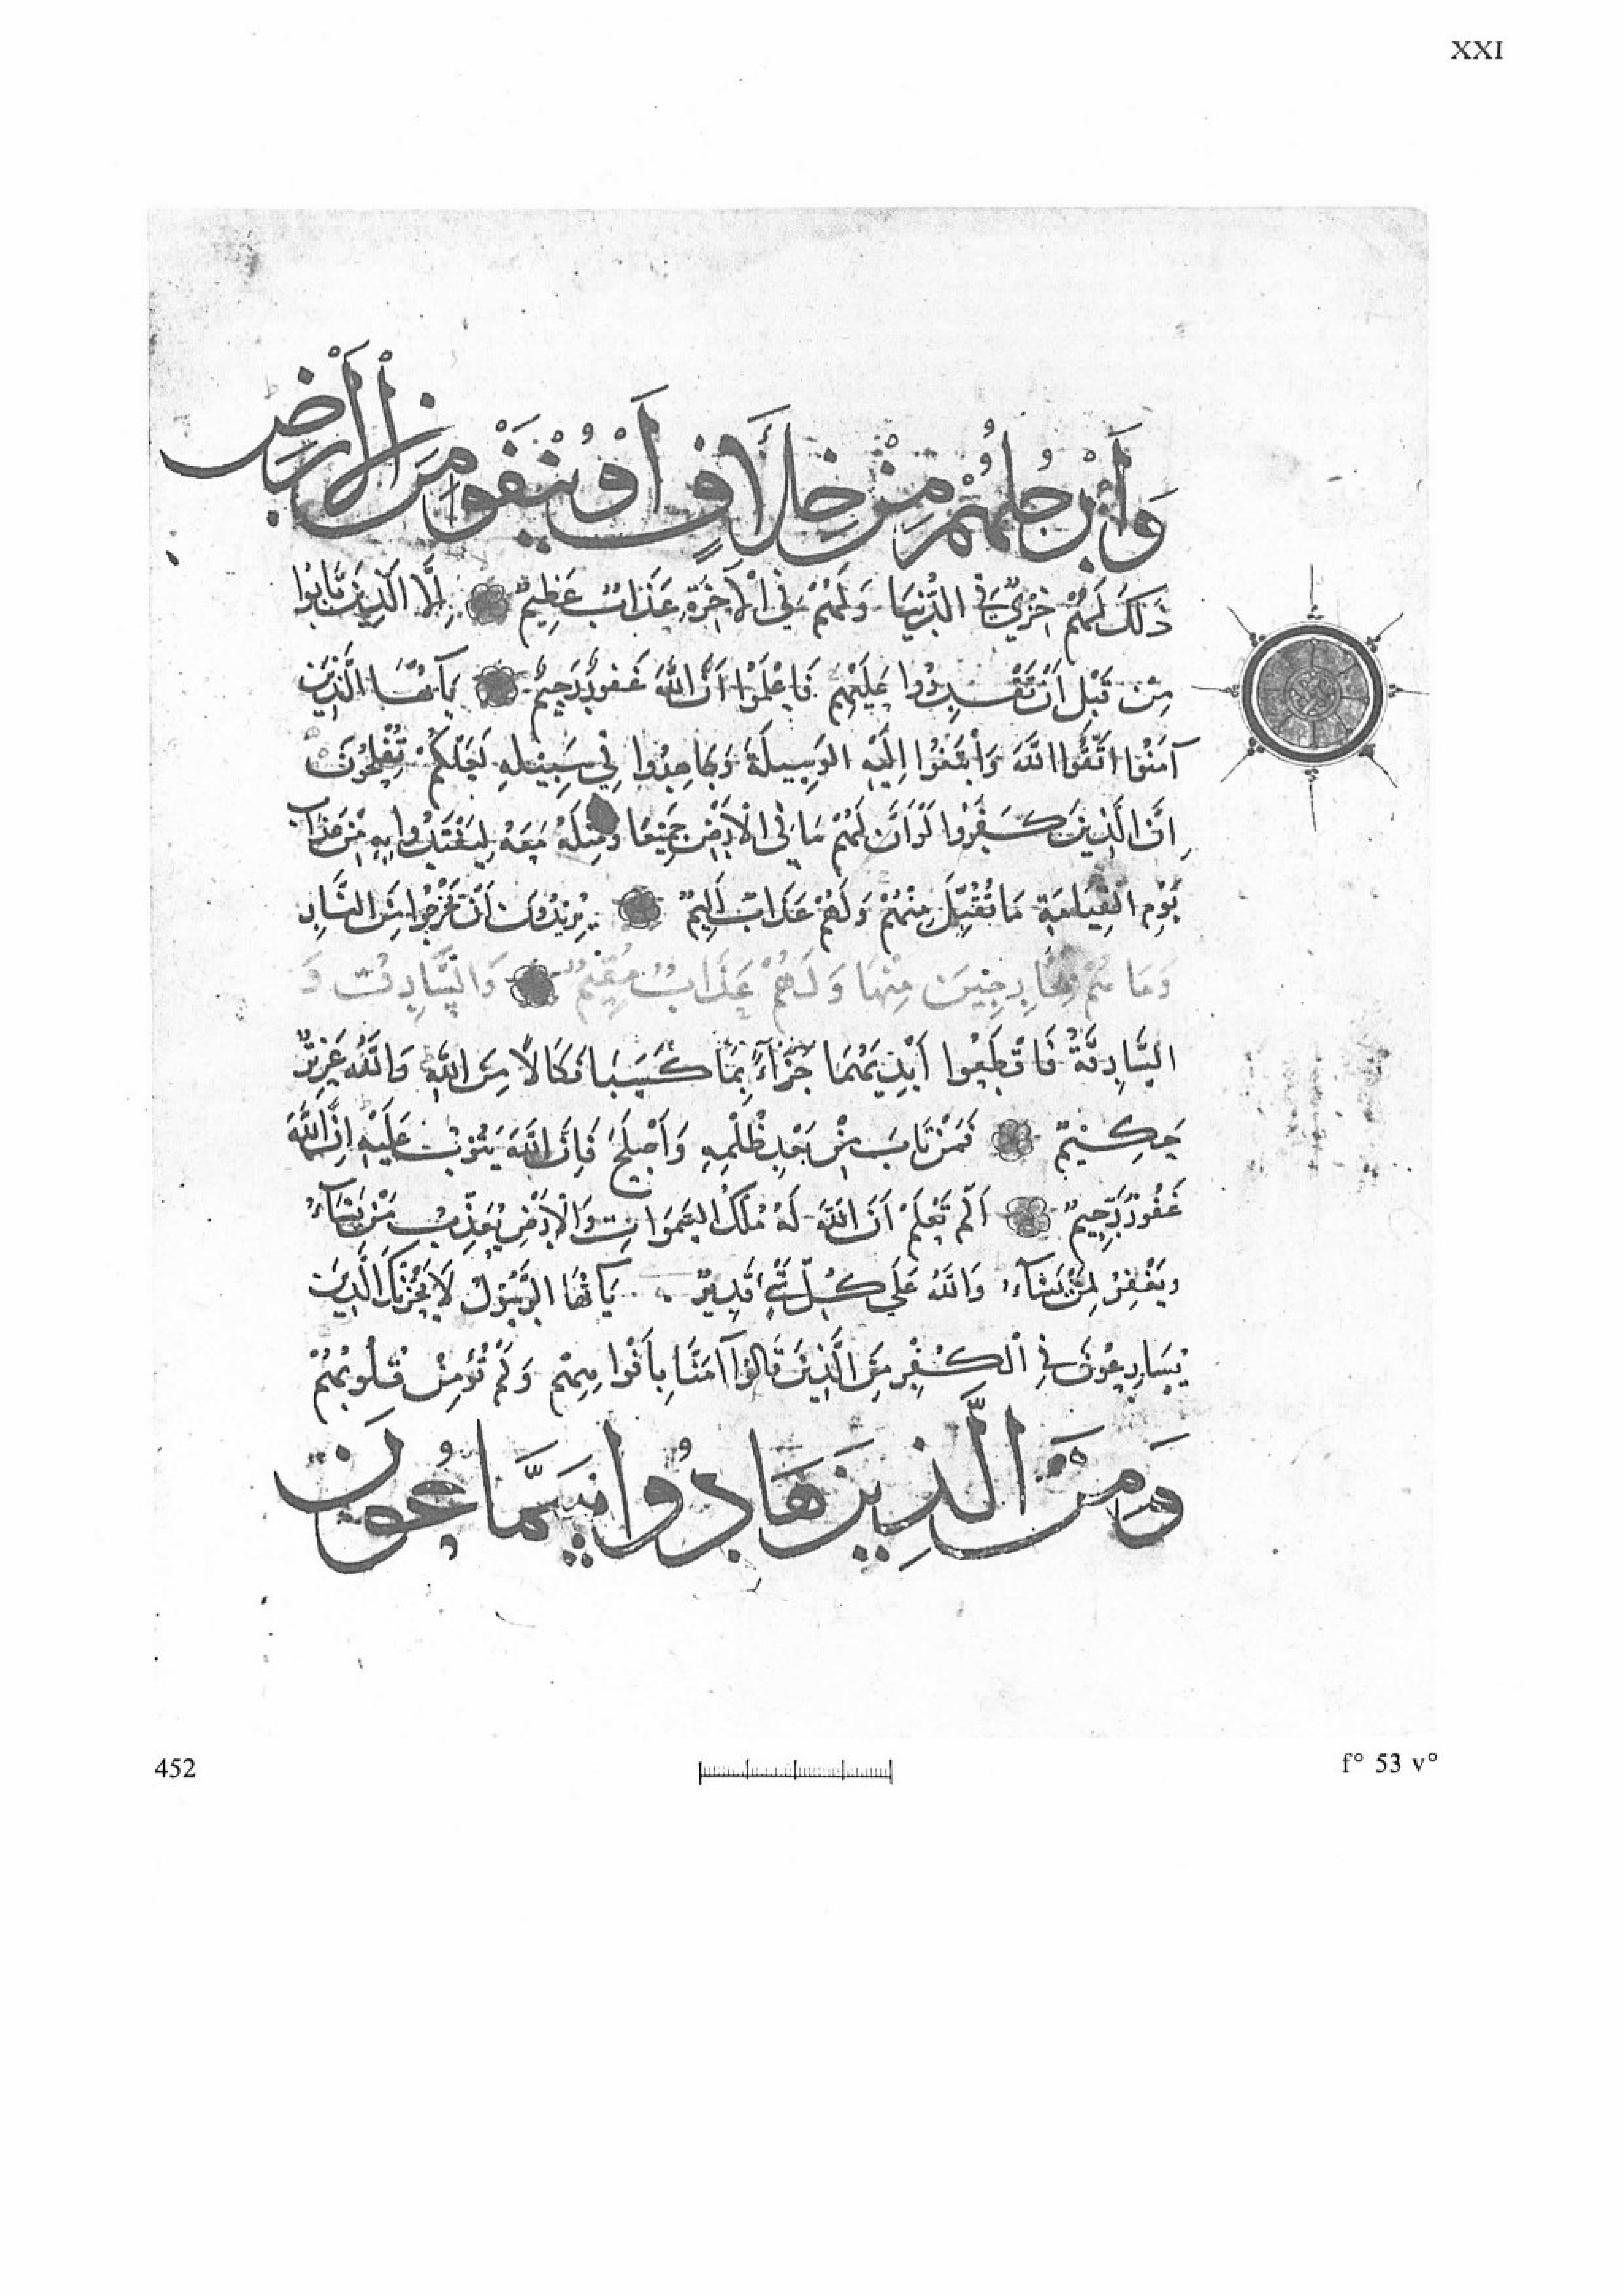 XXI
وَأَرْجُلُهُمْ مِنْ خِلَافٍ أَوْ يُنْفَوْا مِنَ الْأَرْضِ
ذَٰلِكَ لَهُمْ خِزْيٌ فِي الدُّنْيَا وَلَهُمْ فِي الْآخِرَةِ عَذَابٌ عَظِيمٌ إِلَّا الَّذِينَ تَابُوا
مِنْ قَبْلِ أَنْ تَقْدِرُوا عَلَيْهِمْ فَاعْلَمُوا أَنَّ اللَّهَ غَفُورٌ رَحِيمٌ يَآ أَيُّهَا الَّذِينَ
آمَنُوا اتَّقُوا اللَّهَ وَابْتَغُوا إِلَيْهِ الْوَسِيلَةَ وَجَاهِدُوا فِي سَبِيلِهِ لَعَلَّكُمْ تُفْلِحُونَ
إِنَّ الَّذِينَ كَفَرُوا لَوْ أَنَّ لَهُمْ مَا فِي الْأَرْضِ جَمِيعًا وَمِثْلَهُ مَعَهُ لِيَفْتَدُوا بِهِ مِنْ عَذَابِ
يَوْمِ الْقِيَامَةِ مَا تُقُبِّلَ مِنْهُمْ وَلَهُمْ عَذَابٌ أَلِيمٌ يُرِيدُونَ أَنْ يَخْرُجُوا مِنَ النَّارِ
وَمَا هُمْ بِخَارِجِينَ مِنْهَا وَلَهُمْ عَذَابٌ مُقِيمٌ وَالسَّارِقُ وَ
السَّارِقَةُ فَاقْطَعُوا أَيْدِيَهُمَا جَزَآءً بِمَا كَسَبَا نَكَالًا مِنَ اللَّهِ وَاللَّهُ عَزِيزٌ
حَكِيمٌ فَمَنْ تَابَ مِنْ بَعْدِ ظُلْمِهِ وَأَصْلَحَ فَإِنَّ اللَّهَ يَتُوبُ عَلَيْهِ إِنَّ اللَّهَ
غَفُورٌ رَحِيمٌ أَلَمْ تَعْلَمْ أَنَّ اللَّهَ لَهُ مُلْكُ السَّمَوَاتِ وَالْأَرْضِ يُعَذِّبُ مَنْ يَشَآءُ
وَيَغْفِرُ لِمَنْ يَشَآءُ وَاللَّهُ عَلَى كُلِّ شَيْءٍ قَدِيرٌ يَآ أَيُّهَا الرَّسُولُ لَا يَحْزُنْكَ الَّذِينَ
يُسَارِعُونَ فِي الْكُفْرِ مِنَ الَّذِينَ قَالُوا آمَنَّا بِأَفْوَاهِهِمْ وَلَمْ تُؤْمِنْ قُلُوبُهُمْ
وَمِنَ الَّذِينَ هَادُوا سَمَّاعُونَ
452
f° 53 v°